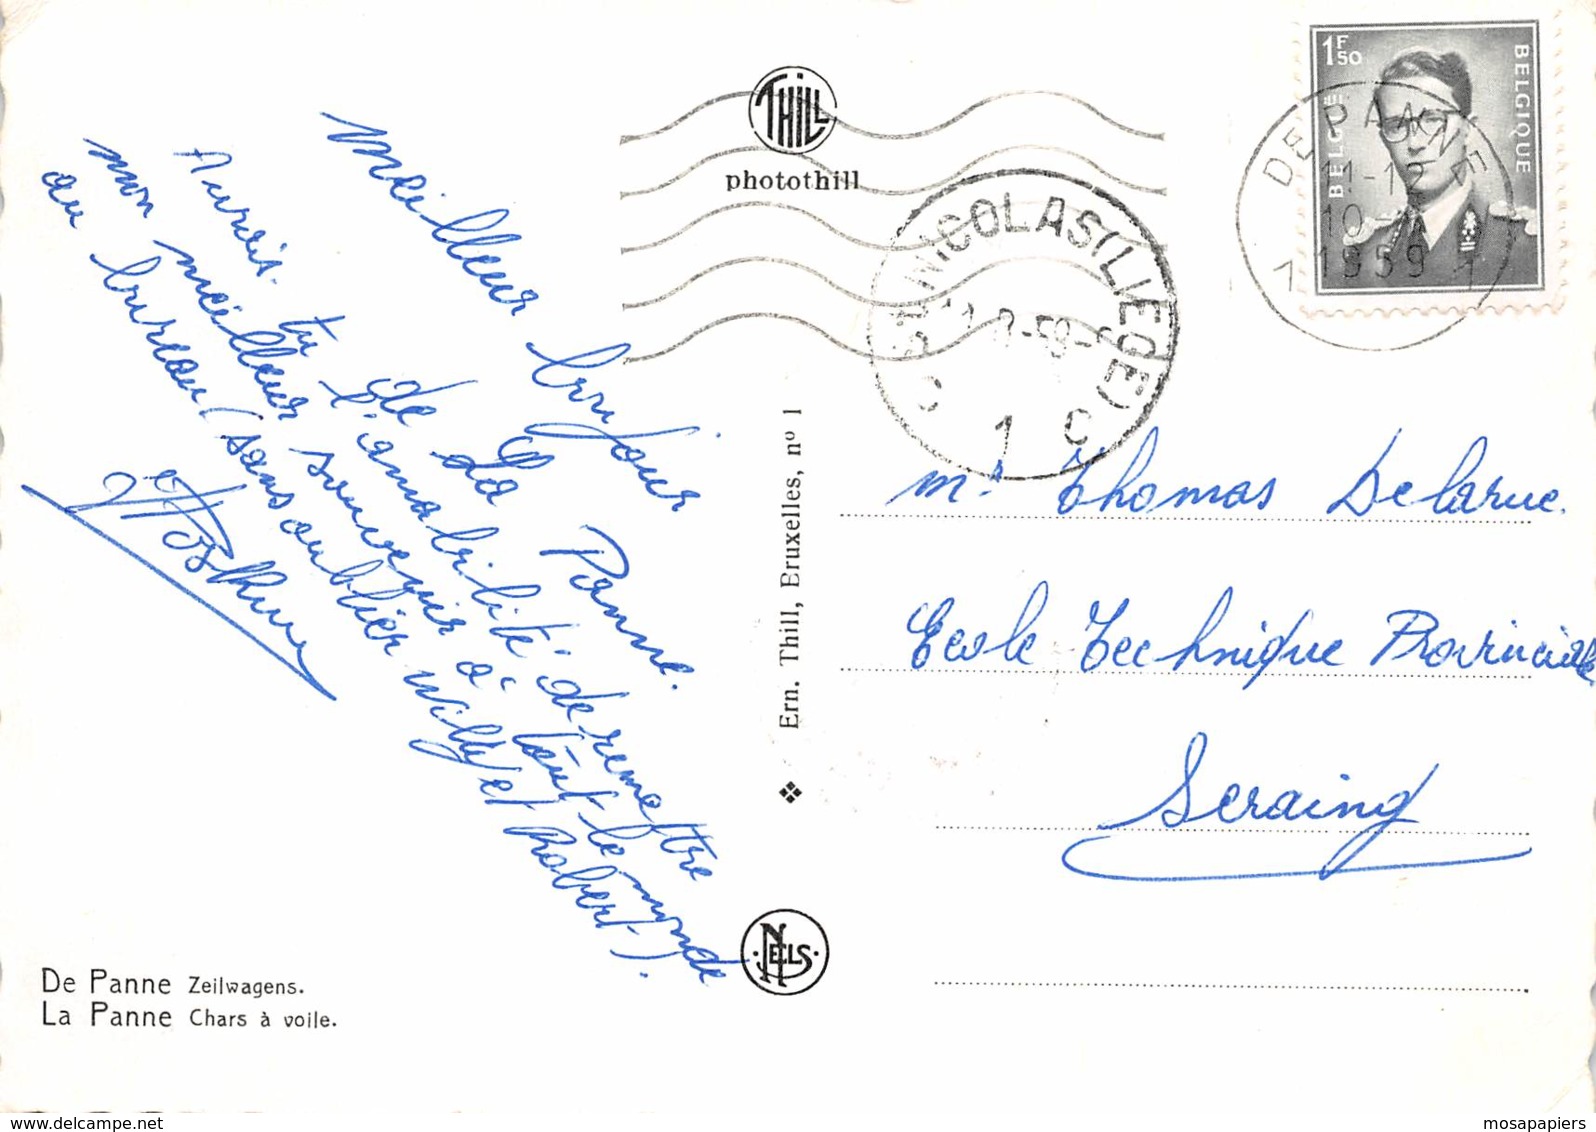 Meilleur bonjour
de La Panne.
Aurais-tu l'amabilité de remettre
mon meilleur souvenir à tout le monde
au bureau (sans oublier Willy et Robert).
THILL
photothill
1F50
BELGIE
BELGIQUE
DE PANNE
11-12
10
1959
ST NICOLAS (LIEGE)
1
C
C
Mr Thomas Delarue.
Ecole Technique Provinciale
Seraing
Ern. Thill, Bruxelles, nº 1
NELS
De Panne Zeilwagens.
La Panne Chars à voile.
mosapapiers
www.delcampe.net